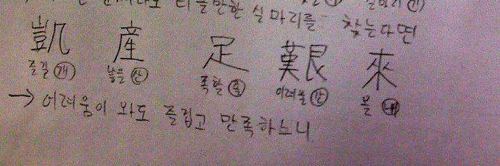 티끌만한 실마리를 찾는다면
凱 産 足 艱 來
즐길 개 낳을 산 족할 족 어려울 간 올 래
→ 어려움이 와도 즐겁고 만족하느니